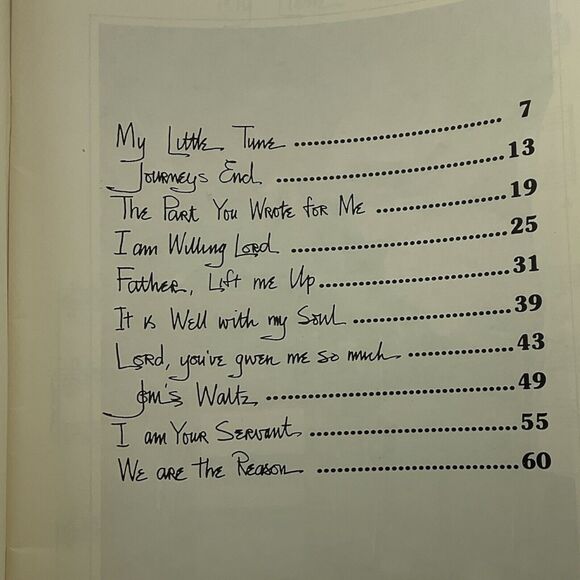 My Little Tune ........ 7
Journeys End ........ 13
The Part You Wrote for Me ........ 19
I am Willing Lord ........ 25
Father, Lift me Up ........ 31
It is Well with my Soul ........ 39
Lord, you've given me so much ........ 43
Waltz ........ 49
I am Your Servant ........ 55
We are the Reason ........ 60